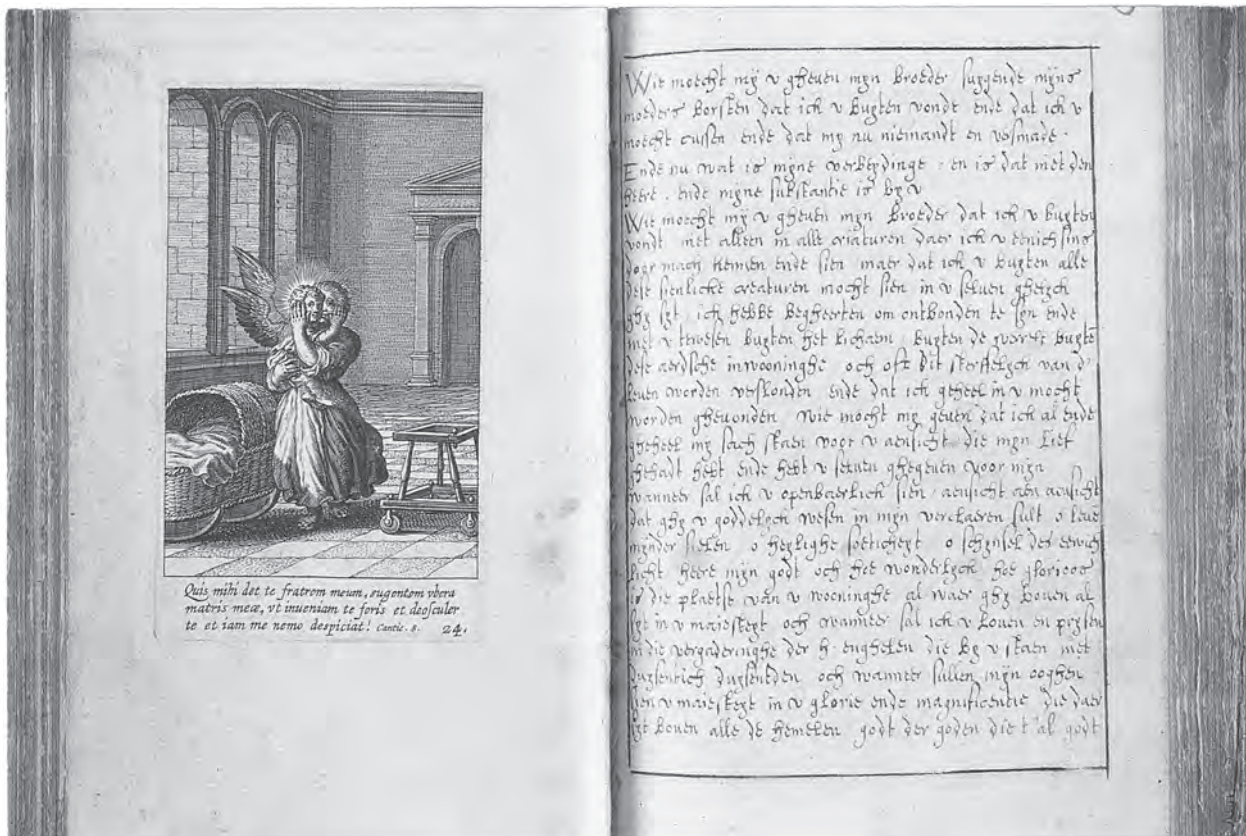 Quis mihi det te fratrem meum, sugentem vbera
matris meæ, vt inueniam te foris et deosculer
te et iam me nemo despiciat! Cantic. 8. 24.
Wie moecht mÿ v gheven mÿn broeder suÿgende mÿns
moeders borsten dat ich v buÿten vonde ende dat ich v
moecht cussen ende dat mÿ nu niemandt en vesmade.
Ende nu wat is mÿne verbeÿdinge. en is dat niet den
heere. ende mÿne substantie is bÿ v
Wie moecht mÿ v gheven mÿn broeder dat ich v buÿten
vondt niet alleen in alle criaturen daer ich v eenich sins
door mach kennen ende sien maer dat ich v buÿten alle
dese sienlicke creaturen mocht sien in v selven
ghÿ sÿt. ich hebbe begheerten om ontbonden te sÿn ende
met v te wesen buÿten het lichaem. buÿten de werelt buÿte
dese aerdsche inwooninghe och oft dit sterffelÿch van d'
leven worden verslonden ende dat ich geheel in v mocht
worden ghevonden wie mocht mÿ geven dat ich al ende
gheheel mÿ sach staen voor v aensicht. die mÿn lief
ghehadt hebt ende hebt v selven ghegeven voor mÿn
wanneer sal ich v openbaerlich sien. aensicht aen aensicht
dat ghÿ v goddelÿch wesen in mÿn verclaeren sult o leve
mÿnder sielen o heÿlighe soeticheÿt o schÿnsel des eewich
licht heere mÿn godt och hoe wonderlÿch hoe glorioos
is die plaetse van v wooninghe al waer ghÿ boven al
sÿt in v maiesteÿt och wanneer sal ich v loven en prÿsen
in die vergaderinghe der h. enghelen die bÿ v staen met
duÿsentich duÿsentden och wanneer sullen mÿn ooghen
sien v maiesteÿt in v glorie ende magnificentie die daer
sÿt boven alle de hemelen godt der goden die t'al godt